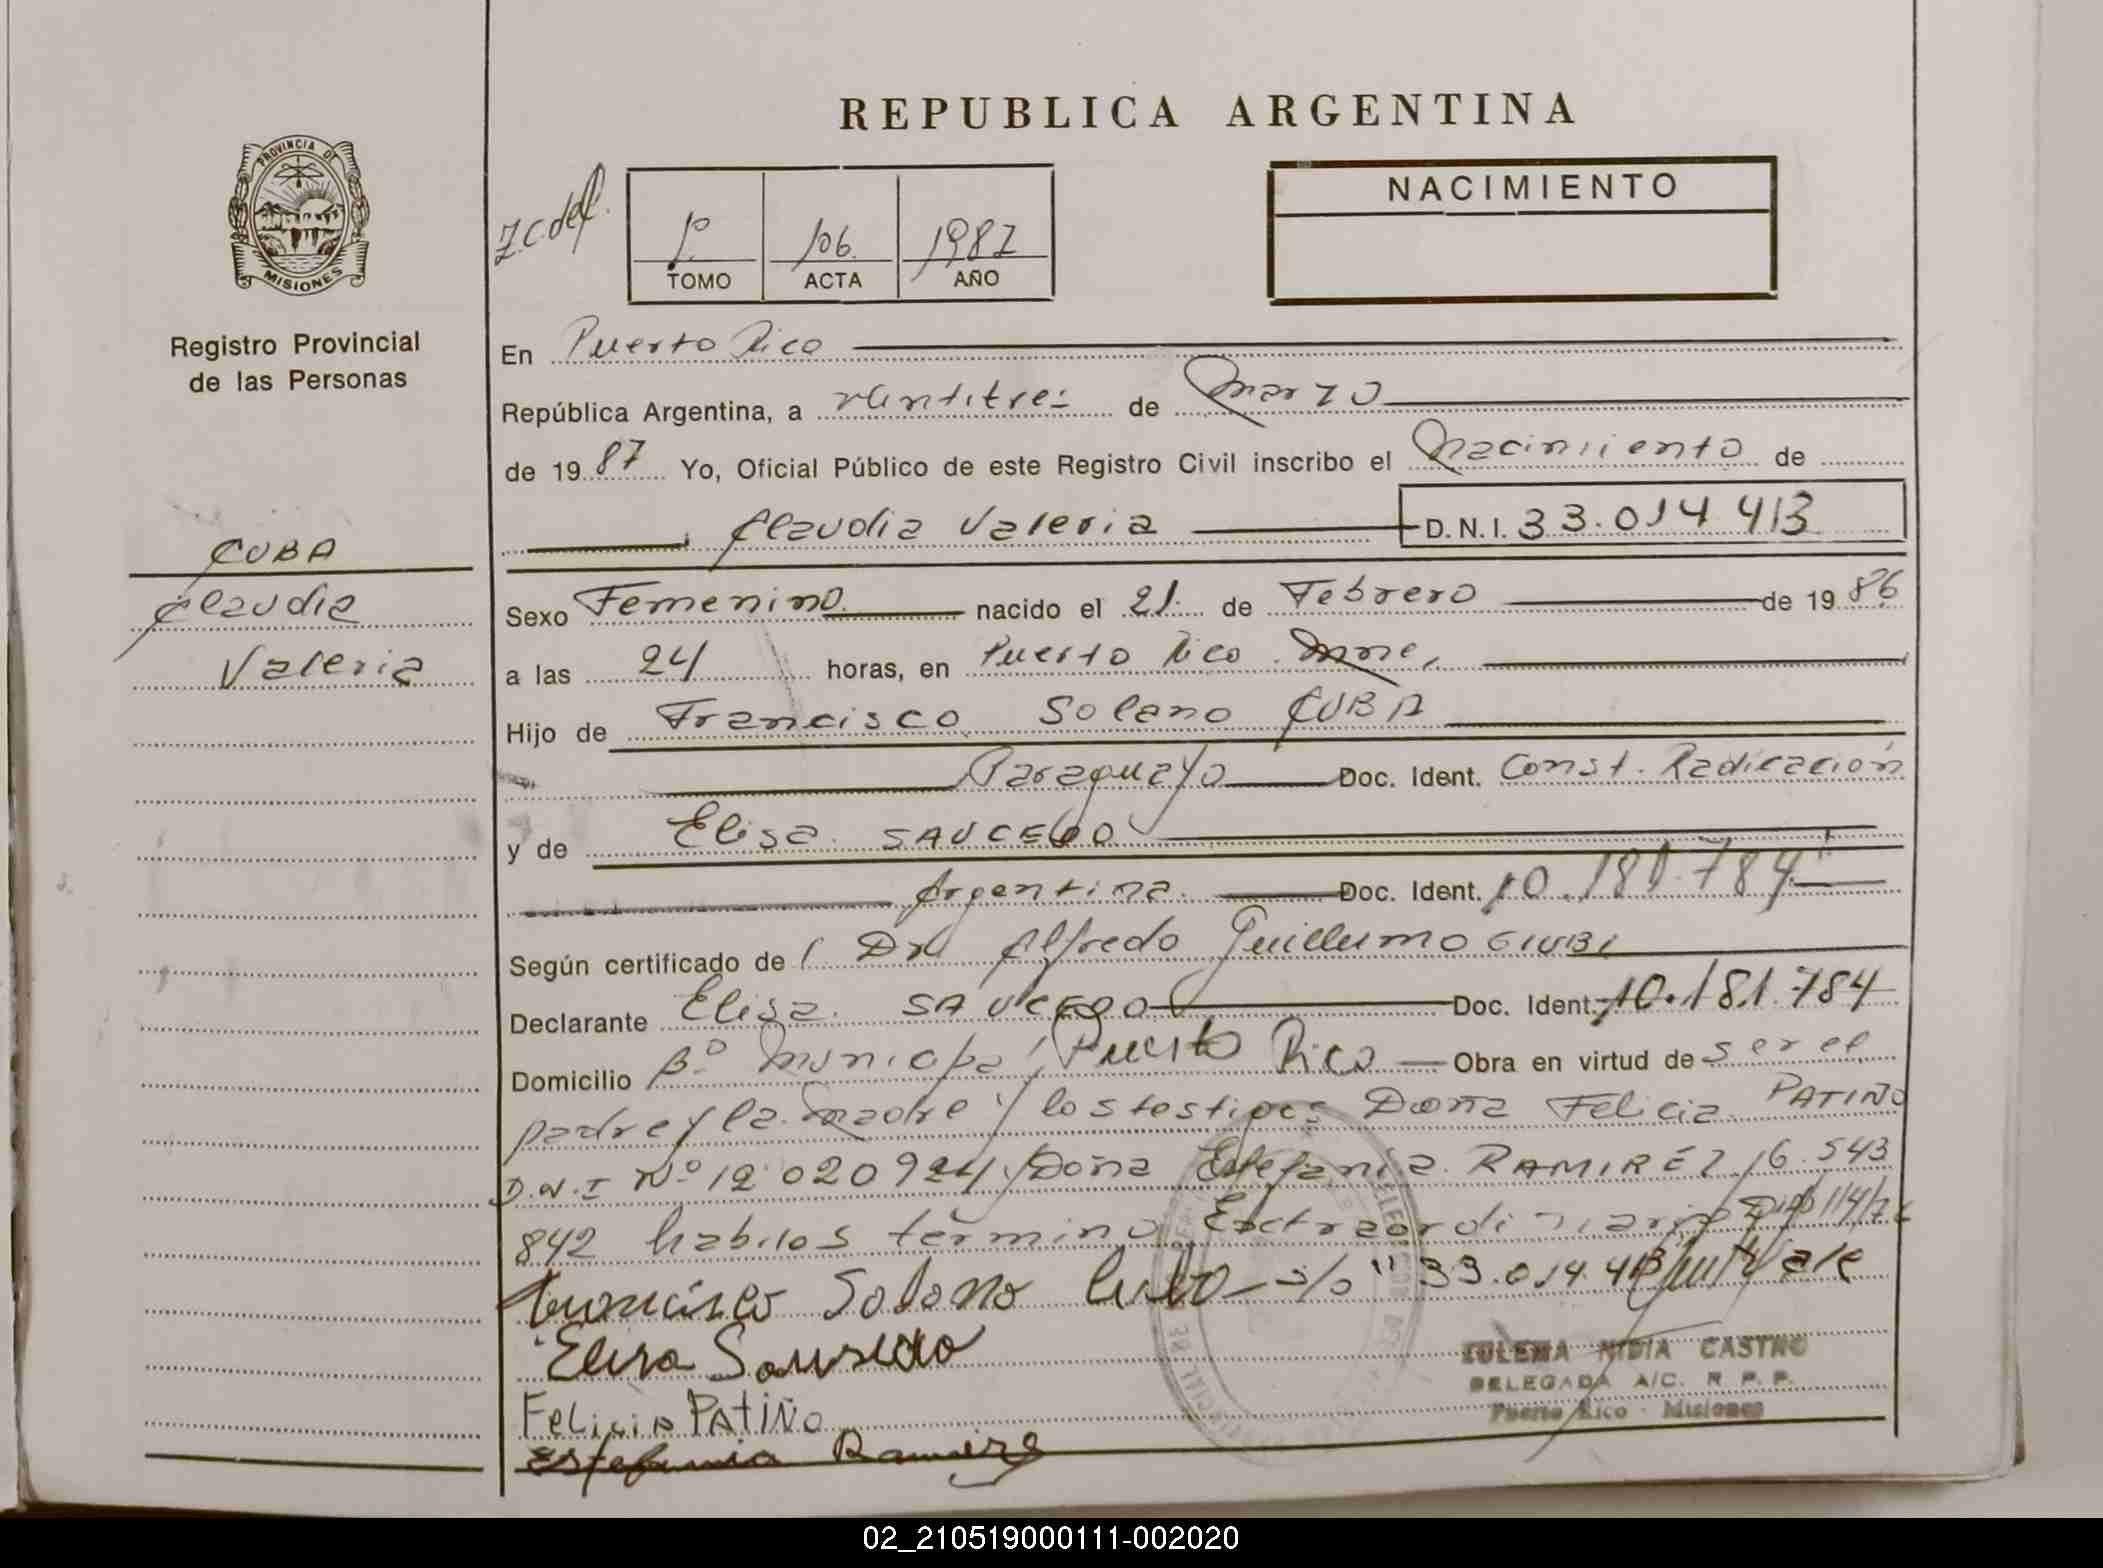 REPUBLICA ARGENTINA
PROVINCIA DE
MISIONES
Registro Provincial
de las Personas
1º 106 1987
TOMO ACTA AÑO
NACIMIENTO
CUBA
Claudia
Valeria
En Puerto Rico
República Argentina, a veintitres de Marzo
de 1987 Yo, Oficial Público de este Registro Civil inscribo el Nacimiento de
Claudia Valeria D.N.I. 33.014 413
Sexo Femenino nacido el 21 de Febrero de 1986
a las 24 horas, en Puerto Rico Mnes,
Hijo de Francisco Solano CUBA
Paraguayo Doc. Ident. Const. Radicación
y de Elisa SAUCEDO
Argentina Doc. Ident. 10.181.784
Según certificado de Dr Alfredo Guillermo GIUBI
Declarante Elisa SAUCEDO Doc. Ident. 10.181.784
Domicilio Bº Municipal Puerto Rico Obra en virtud de ser el
padre y la madre y los testigos Doña Felicia PATIÑO
D.N.I Nº 12 020 924 y Doña Estefania RAMIREZ 16.543
842 habiles término Extraordinario
Francisco Solano Cuba s/o "33.014.413" Vale
Elisa Sausedo
Felicia PATiÑo
Estefania Ramirez
ZULEMA NIDIA CASTRO
DELEGADA A/C. R. P. P.
Puerto Rico - Misiones
02_210519000111-002020